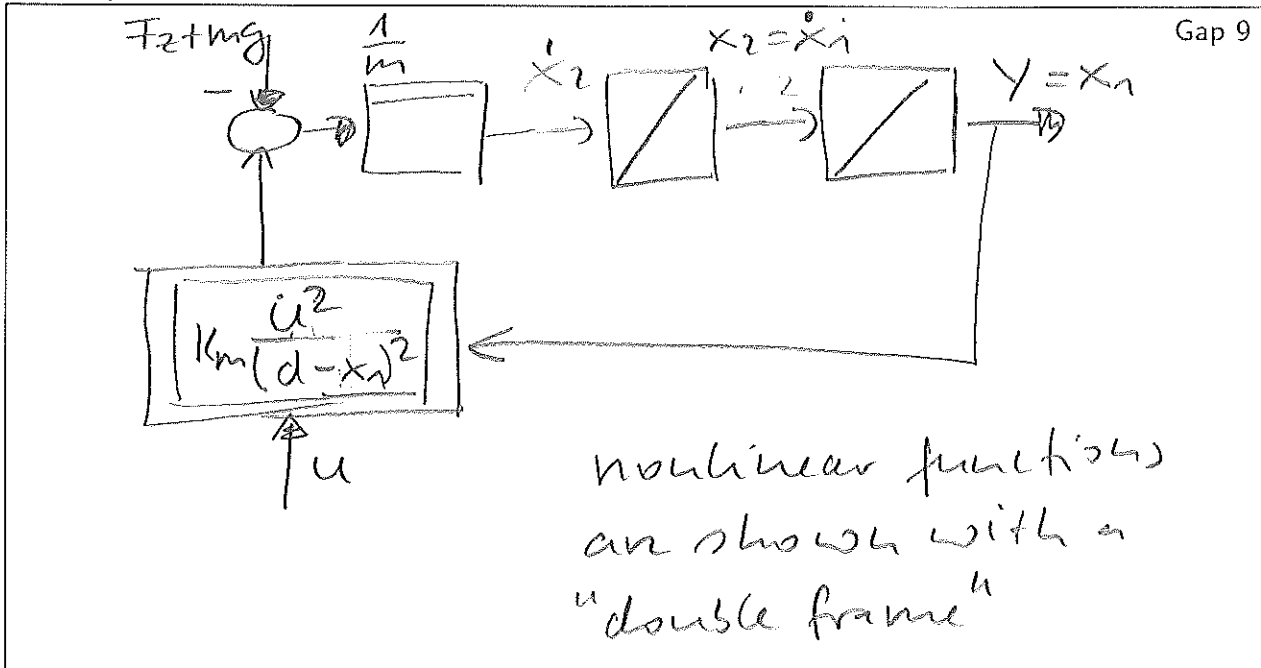 Gap 9
Fz+mg
-
1/m
ẋ2
x2=ẋ1
Y=x1
Km u²/(d-x1)²
u
nonlinear functions
are shown with a
"double frame"